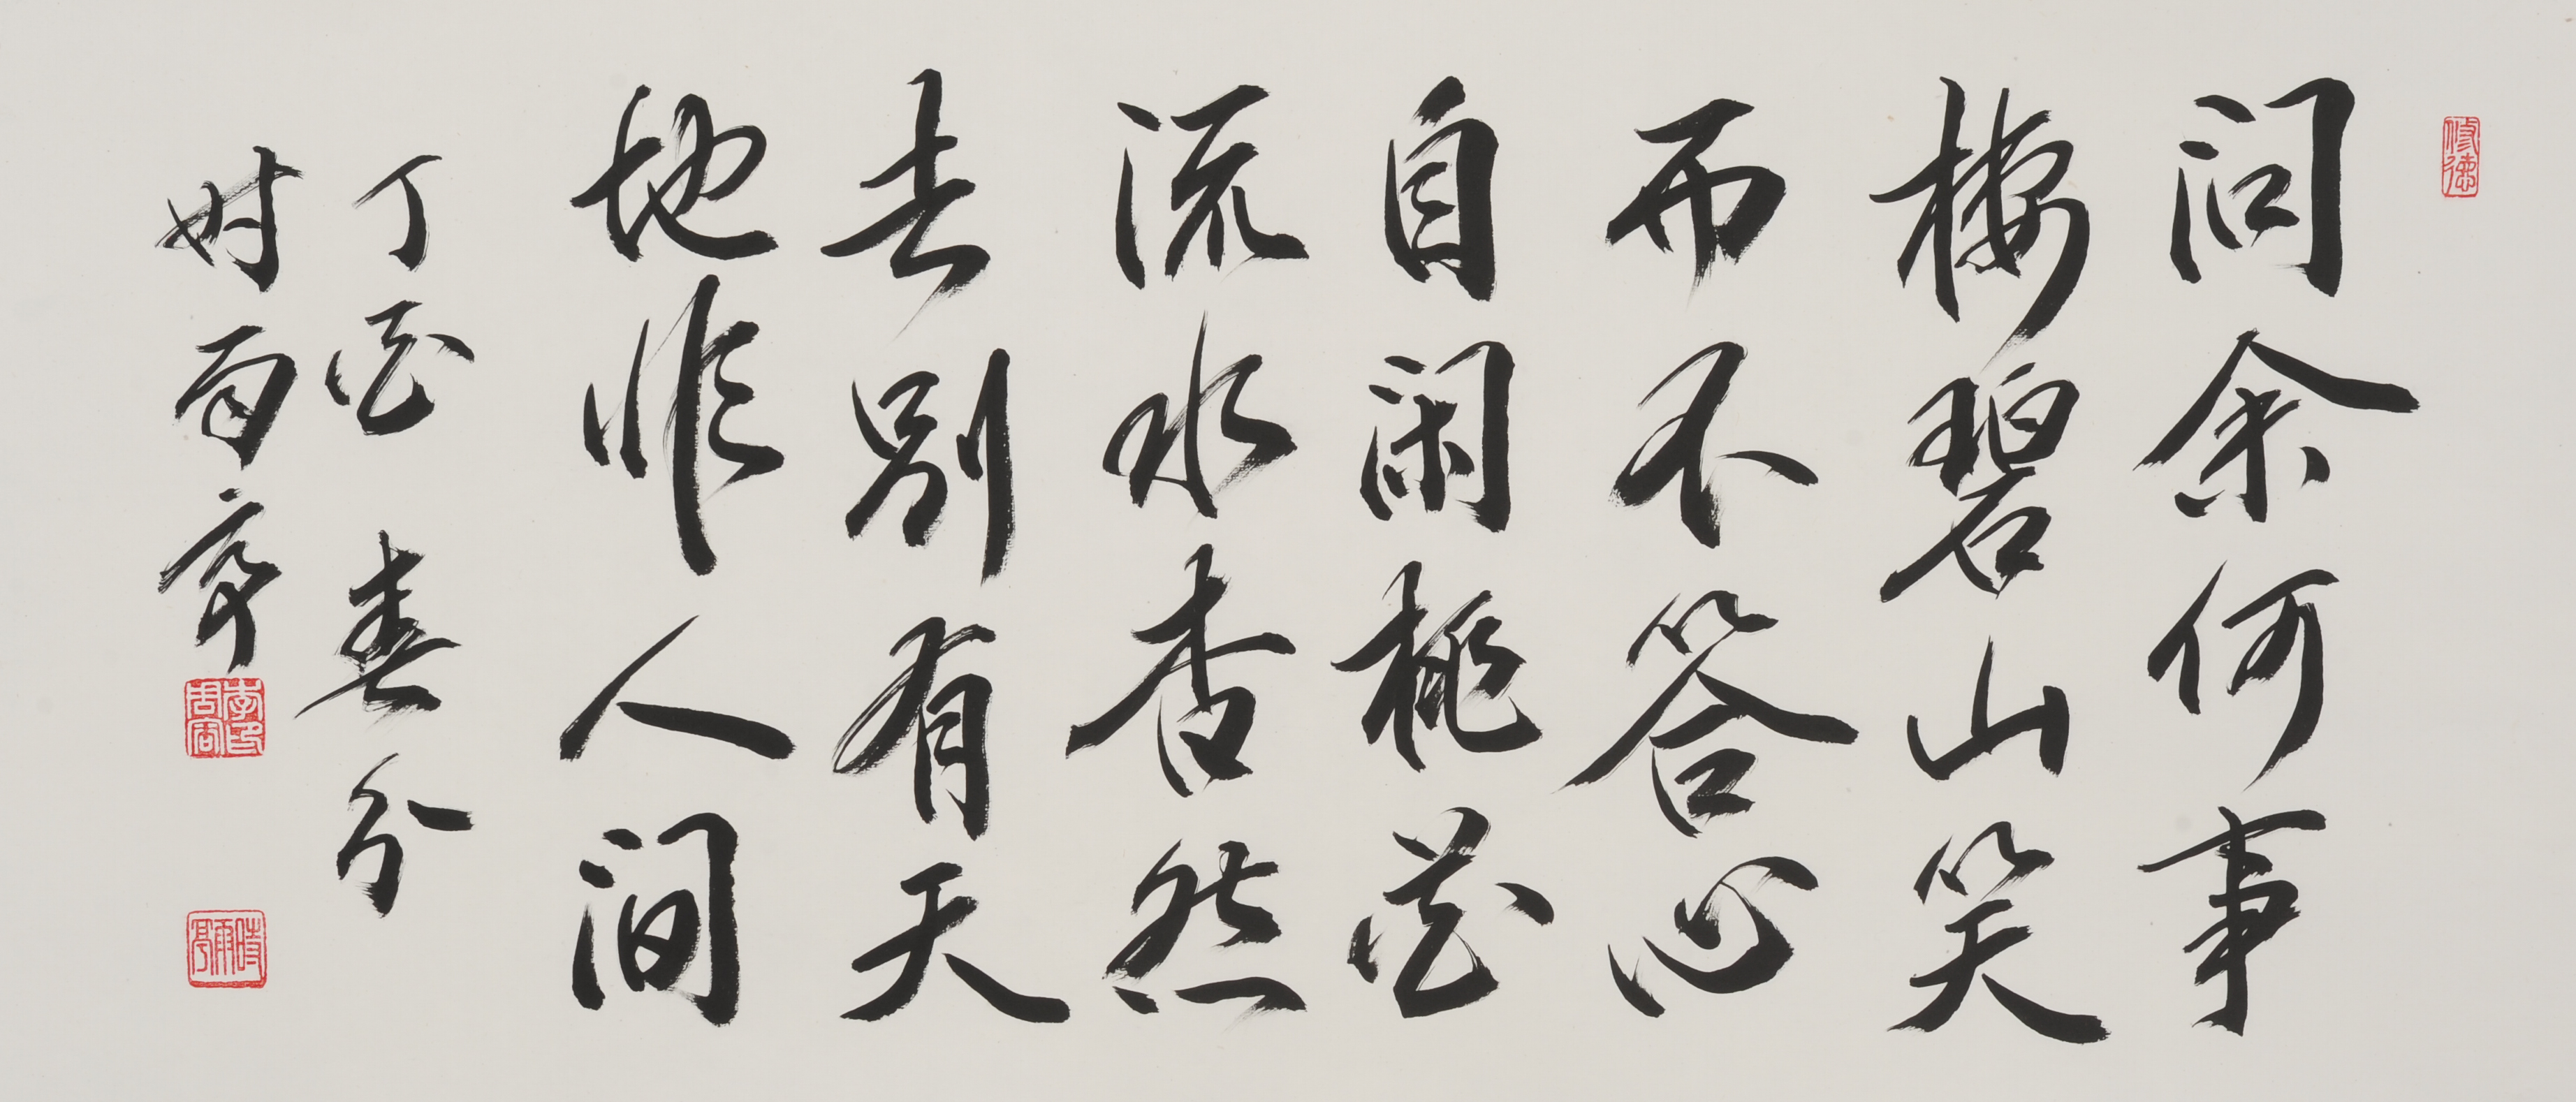 修德
问余何事
棲碧山笑
而不答心
自闲桃花
流水杳然
去别有天
地非人间
丁酉春分
时雨亭
時雨亭